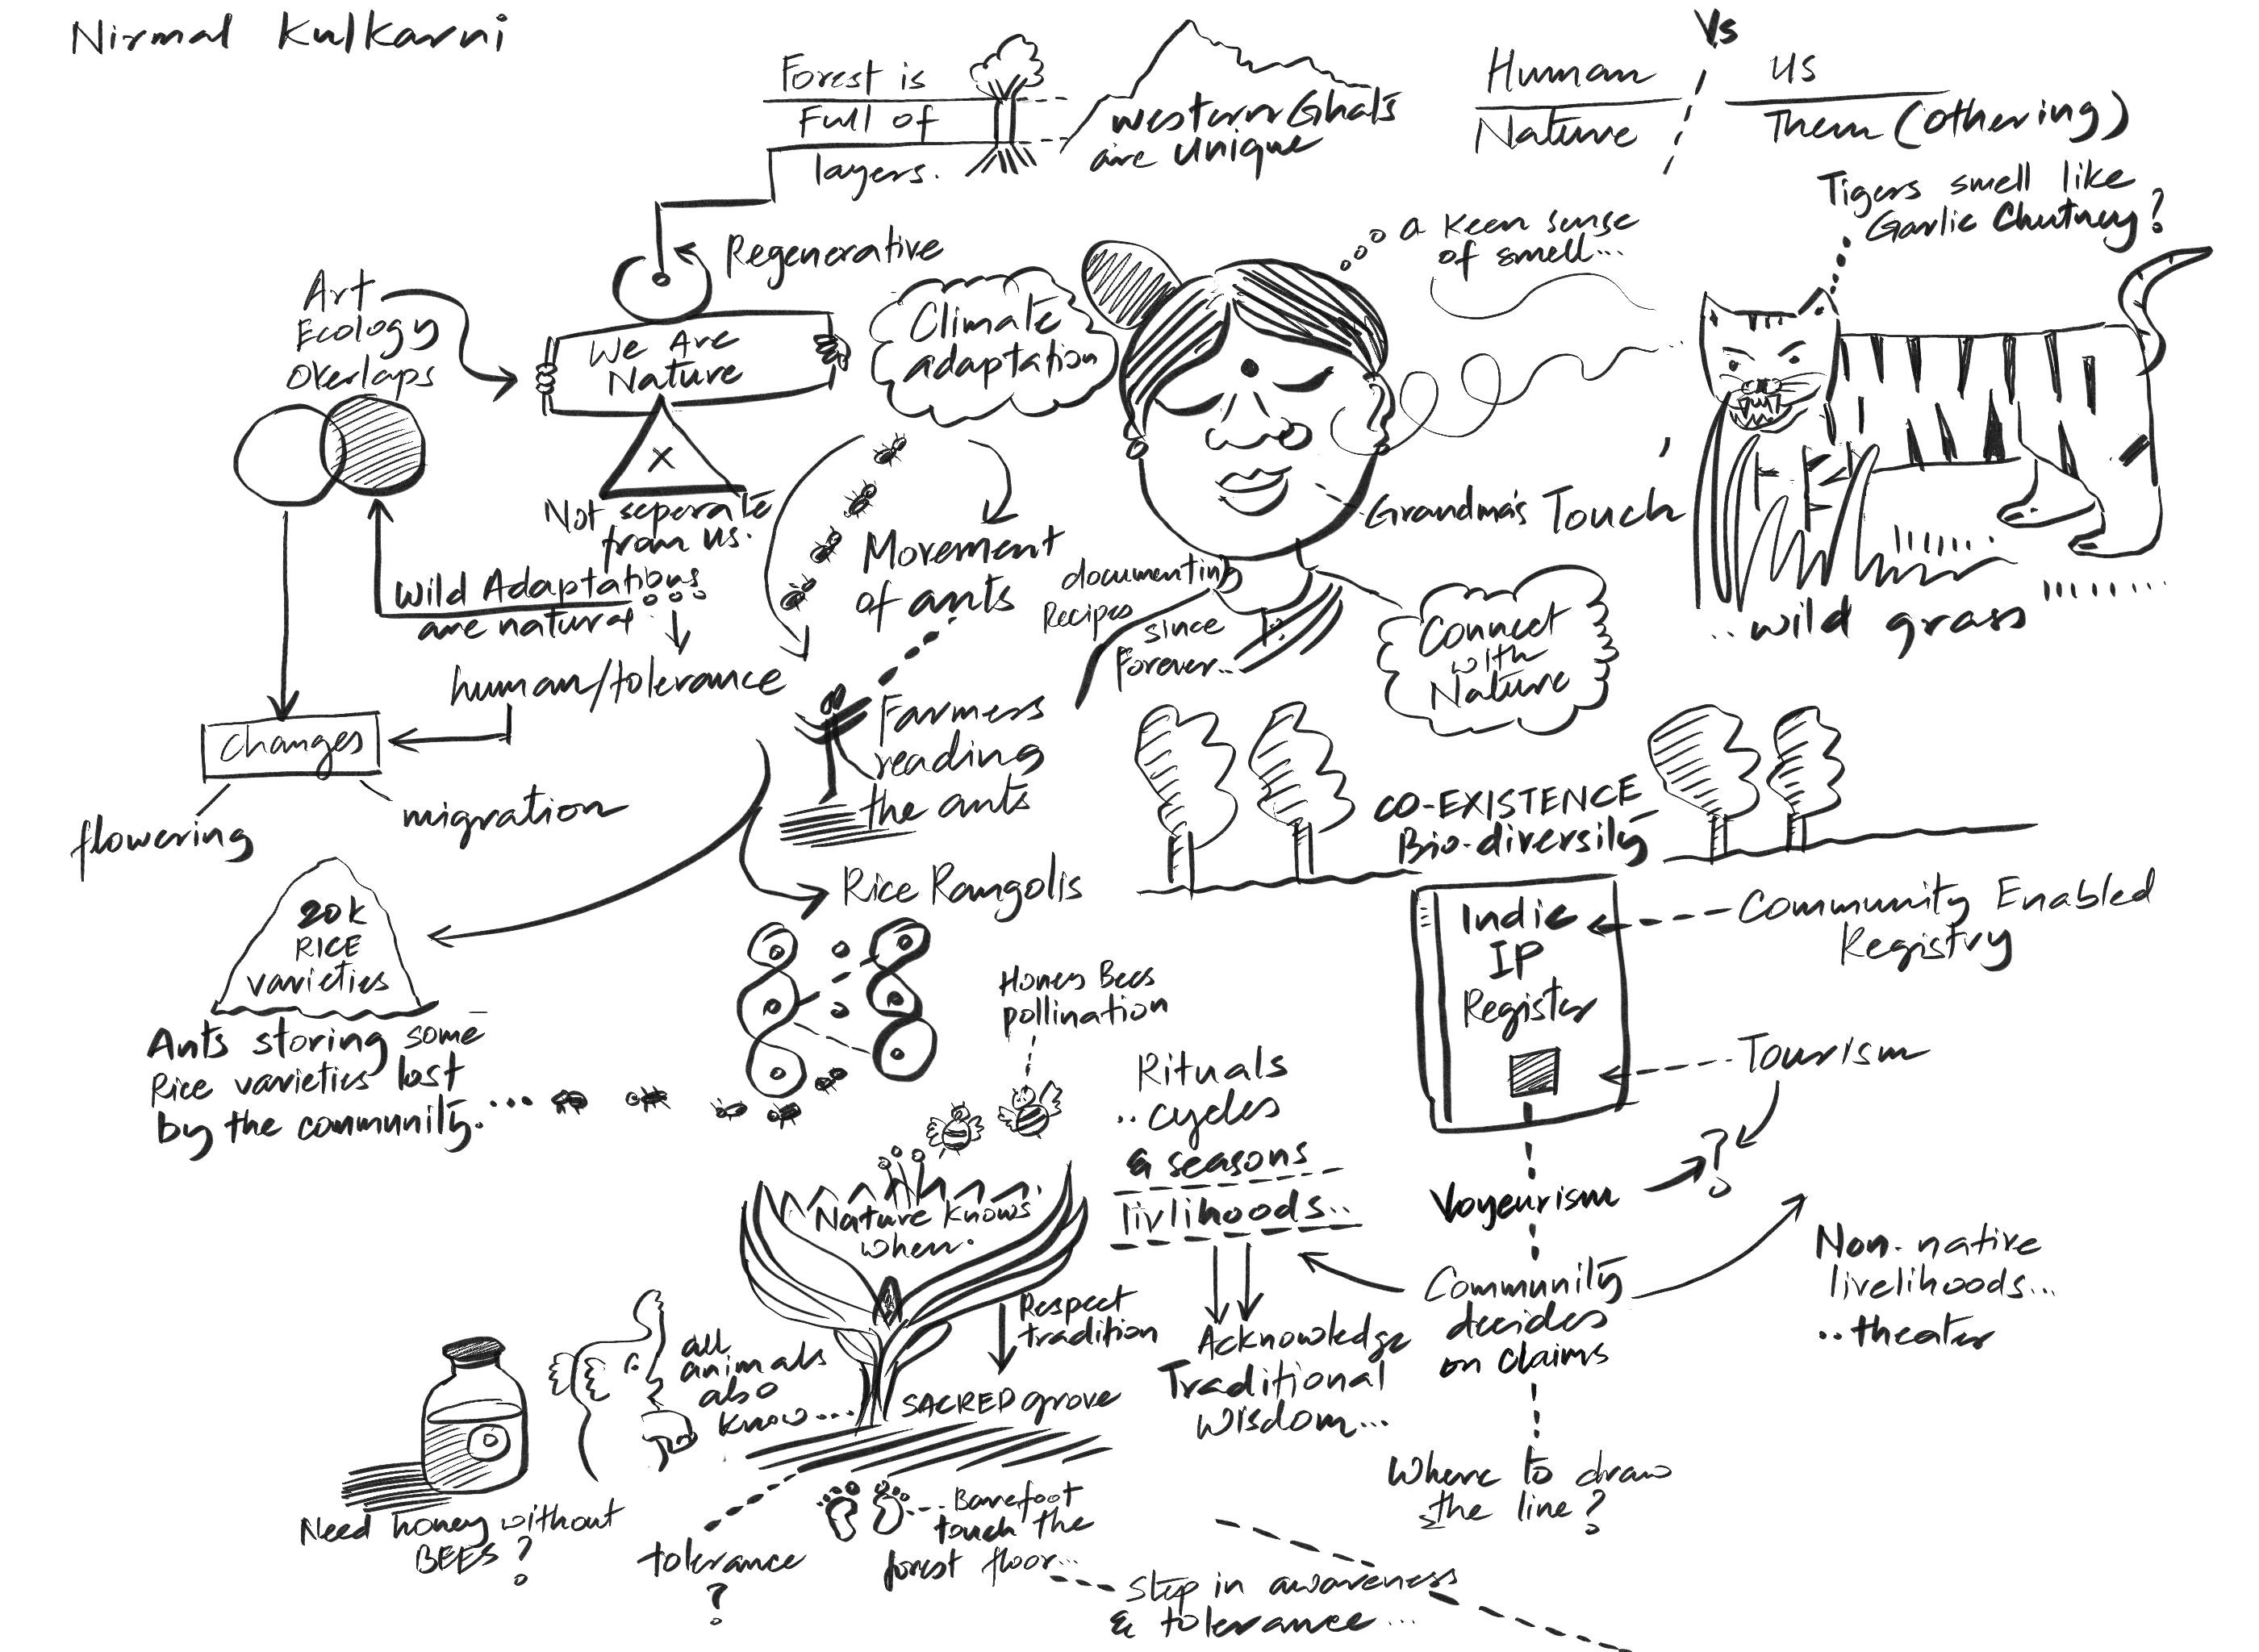 Nirmal Kulkarni
Forest is
Full of
layers.
Western Ghats
are unique
Human
Nature
Vs
us
Them (othering)
Tigers smell like
Garlic Chutney?
a keen sense
of smell...
Regenerative
Art
Ecology
Overlaps
We Are
Nature
Climate
adaptation
x
Not seperate
from us.
Wild Adaptations
are natural
human/tolerance
Movement
of ants
Grandma's Touch
documenting
Recipes
since
Forever..
Connect
with
Nature
..wild grass
changes
flowering
migration
Farmers
reading
the ants
CO-EXISTENCE
Bio-diversity
Rice Rangolis
20k
RICE
varieties
Ants storing some
Rice varieties lost
by the community...
Honey Bees
pollination
Indic
IP
Register
Community Enabled
Registry
Tourism
?
Voyeurism
Rituals
..cycles
& seasons
livlihoods..
Nature knows
when.
Community
decides
on claims
Non-native
livelihoods...
..theater
Respect
tradition
Acknowledge
Traditional
wisdom...
all
animals
also
know...
SACRED grove
Where to draw
the line?
Need honey without
BEES?
tolerance
?
Barefoot
touch the
forest floor...
Step in awareness
& tolerance...